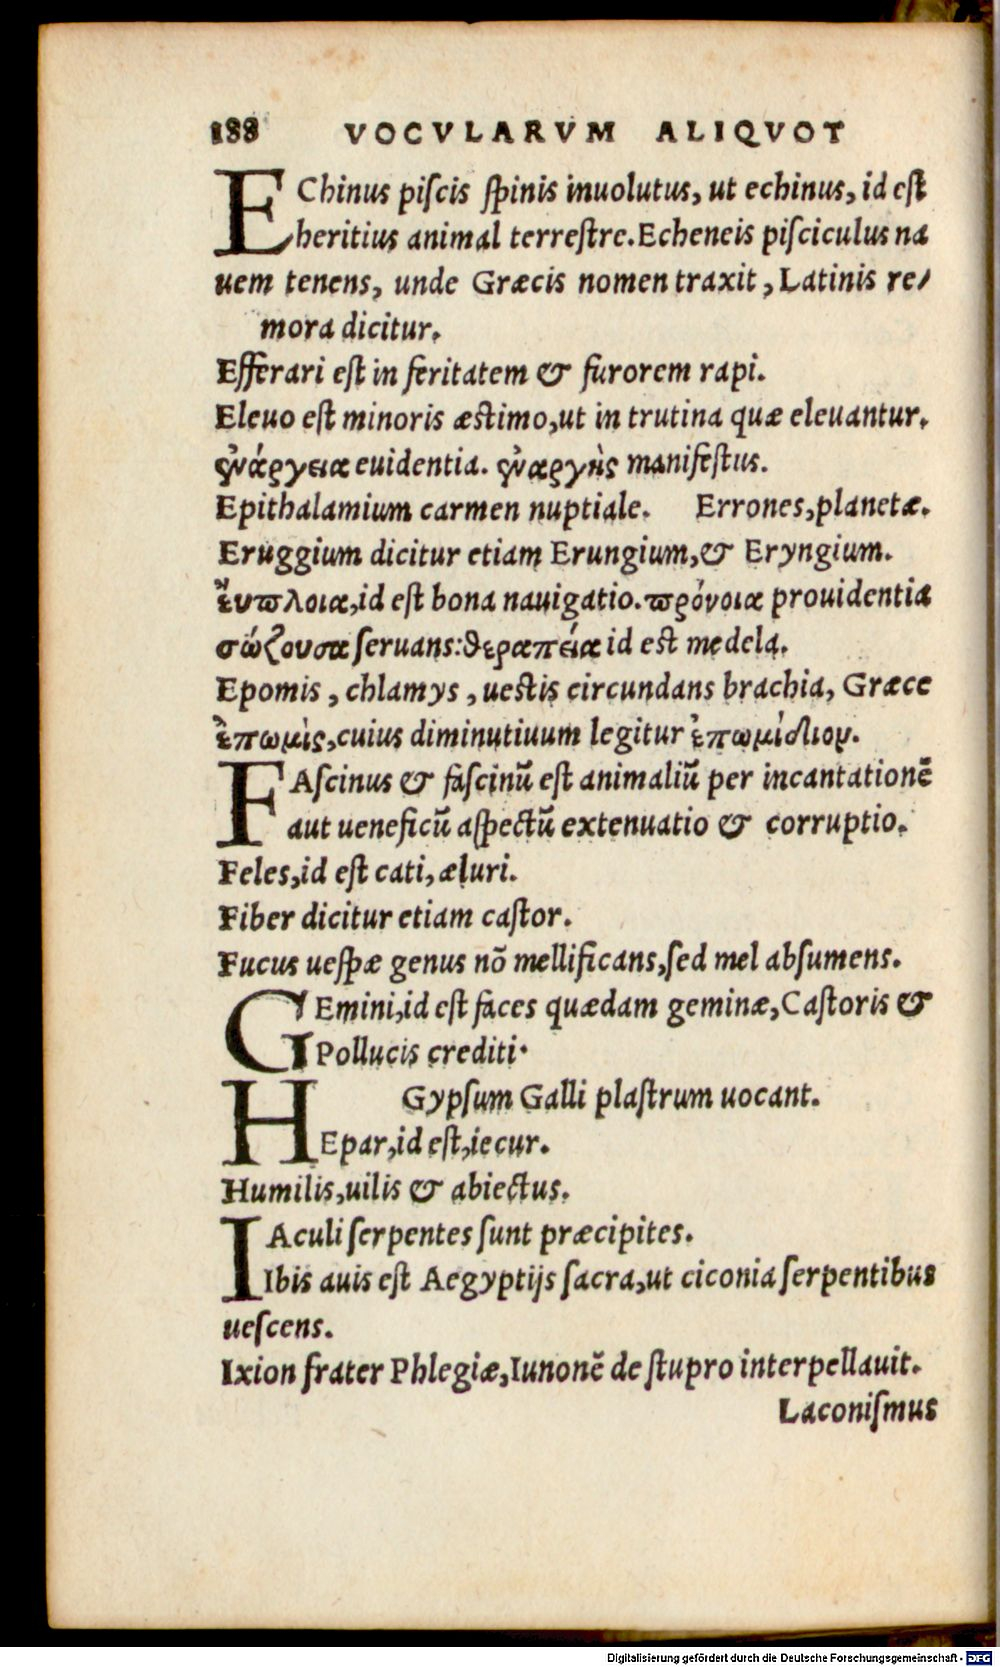 188 VOCVLARVM ALIQVOT
EChinus piſcis ſpinis inuolutus, ut echinus, id eſt
heritius animal terreſtre. Echeneis piſciculus na
uem tenens, unde Græcis nomen traxit, Latinis re/
mora dicitur.
Efferari eſt in feritatem & furorem rapi.
Eleuo eſt minoris æſtimo, ut in trutina quæ eleuantur.
ἐνάργεια euidentia. ἐναργὴς manifeſtus.
Epithalamium carmen nuptiale. Errones, planetæ.
Eruggium dicitur etiam Erungium, & Eryngium.
ἔυπλοια, id eſt bona nauigatio. πρόνοια prouidentia
σώζουσα ſeruans: θεραπεία id eſt medela.
Epomis, chlamys, ueſtis circundans brachia, Græce
ἐπωμὶς, cuius diminutiuum legitur ἐπωμίδιον.
FAſcinus & faſcinū eſt animaliū per incantationē
aut ueneficū aſpectū extenuatio & corruptio.
Feles, id eſt cati, æluri.
Fiber dicitur etiam caſtor.
Fucus ueſpæ genus nō mellificans, ſed mel abſumens.
GEmini, id eſt faces quædam geminæ, Caſtoris &
Pollucis crediti·
Gypſum Galli plaſtrum uocant.
HEpar, id eſt, iecur.
Humilis, uilis & abiectus.
IAculi ſerpentes ſunt præcipites.
Ibis auis eſt Aegyptijs ſacra, ut ciconia ſerpentibus
ueſcens.
Ixion frater Phlegiæ, Iunonē de ſtupro interpellauit.
Laconiſmus
Digitalisierung gefördert durch die Deutsche Forschungsgemeinschaft - DFG